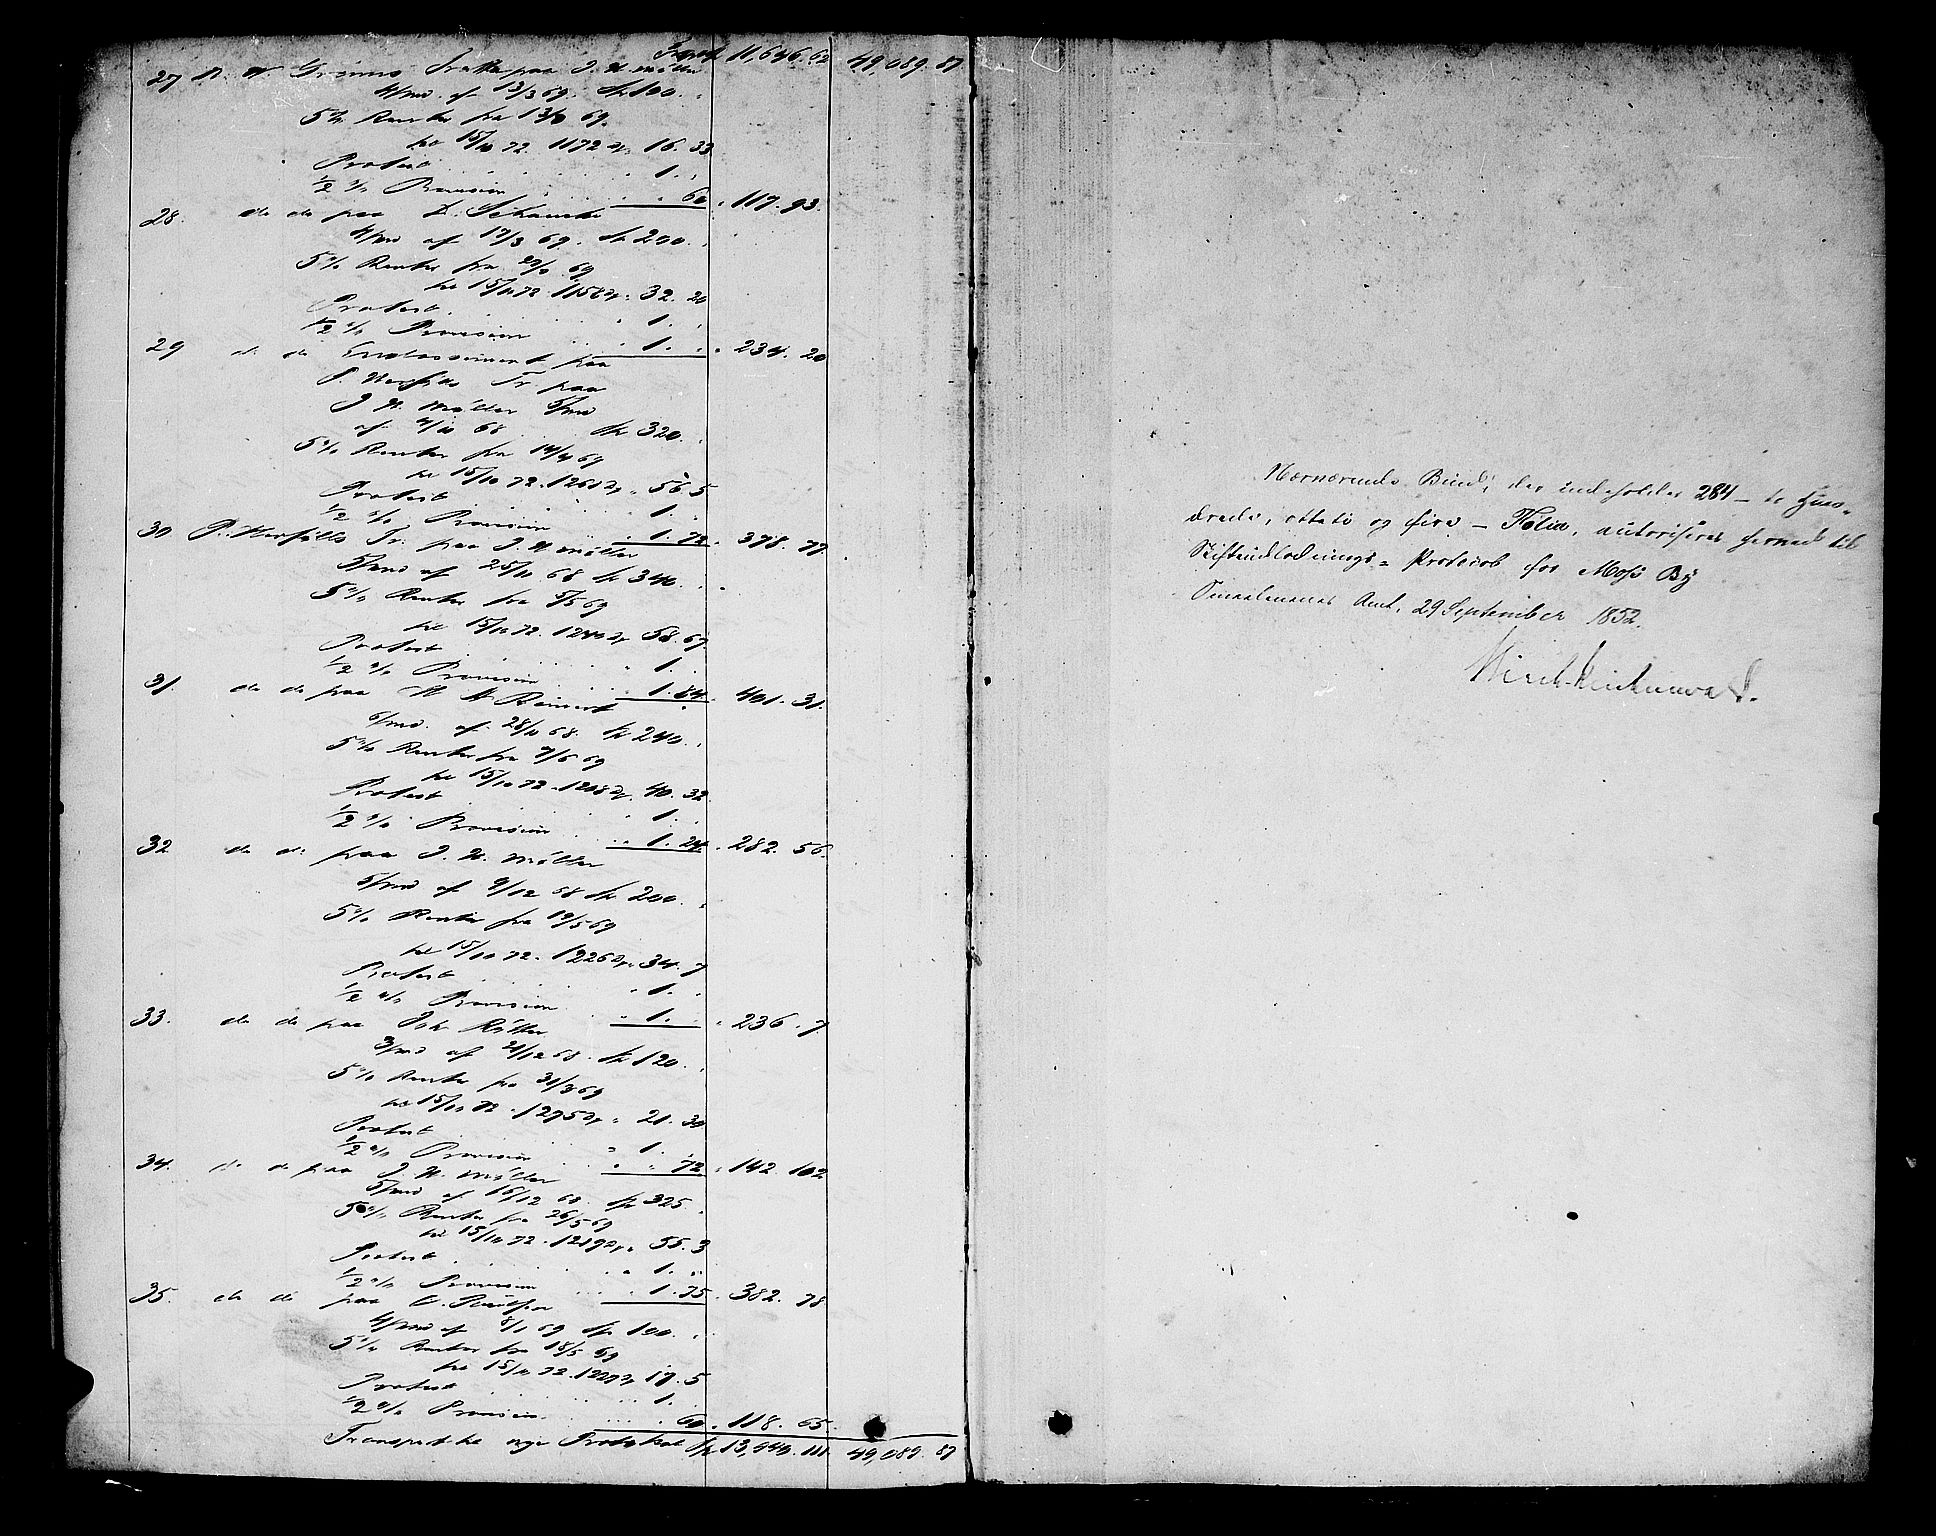 Transpt 11,646.62 49,089.87
27 P. W. Grünns Tratte paa J. N. Möller
4/md. af 13/3 69. Sp 100.
5% Renter fra 13/8 69.
til 15/10 72. 1172 D. 16. 33
Protest 1.
1/2 % Provision 60. 117. 93.
28. do do paa
4/md af 17/3 69. Sp 200.
5% Renter fra 69
til 15/10 72. 1158 D. 32. 20
Protest 1.
1/2 % Provision 1. 234. 20
29 do do Endossement paa
P. Herfölls Tr. paa
J. N. Möller 5/md
af 68 Sp 320.
5% Renter fra 14/4 69
til 15/10 72. 1261 D. 56. 5
Protest 1.
1/2 % Provision 1. 72. 378. 77
30 P. Herfölls Tr. paa J. N. Möller
5/md af 25/11 68 Sp 340.
5% Renter fra 5/5 69
til 15/10 72. 1240 D. 58. 67.
Protest 1.
1/2 % Provision 1. 84. 401. 31.
31. do do paa H. H. Reinert
6/md. af 28/11 68. Sp 240.
5% Renter fra 7/6 69
til 15/10 72. 1208 D. 40. 32
Protest 1.
1/2 % Provision 1. 24. 282. 56.
32 do do paa J. N. Möller
5/md af 9/12 68 Sp 200.
5% Renter fra 19/5 69
til 15/10 72. 1226 D. 34. 7
Protest 1.
1/2 % Provision 1. 236. 7
33. do do paa Joh. Ritter
3/md af 21/12 68. Sp 120.
5% Renter fra 31/3 69
til 15/10 72. 1275 D. 21. 30
Protest 1.
1/2 % Provision 72. 142 102
34. do do paa J. N. Möller
5/md af 16/12 68. Sp 325.
5% Renter fra 26/5 69
til 15/10 72. 1219 D. 55. 3
Protest 1.
1/2 % Provision 1. 75. 382. 78
35. do do paa
4/md af 8/1 69 Sp 100.
5% Renter fra 18/5 69
til 15/10 72. 1227 D. 17. 5
Protest 1.
1/2 % Provision 60. 118. 65.
Transport til nye Protokol Sp 13,940. 111. 49,089. 87
Nærværende Bind, der indeholder 284 – to Hun-
drede, otteti og fire – Folier, autoriseres herved til
Skifteudlodnings-Protocol for Moss By
Smaalenenes Amt, 29 September 1852.